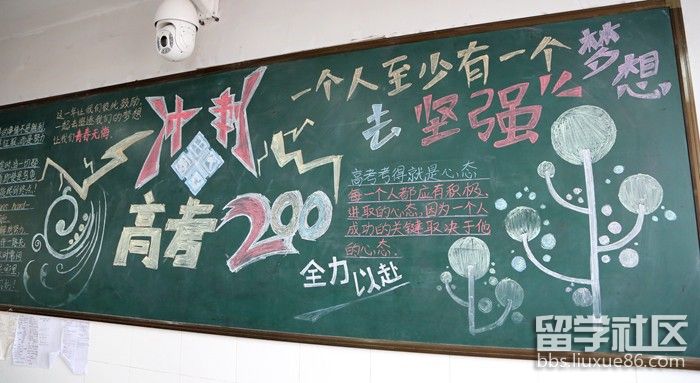 一个人至少有一个
梦想
去
坚强
冲刺
高考200
全力以赴
这一年让我们彼此鼓励,
一起去追逐我们的梦想
让我们青春无悔。
高考考得就是心态
每一个人都应有积极、
进取的心态,因为一个人
成功的关键取决于他
的心态.
留学社区
bbs.liuxue86.com